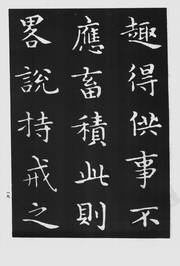 趣得供事不
應畜積此則
畧說持戒之